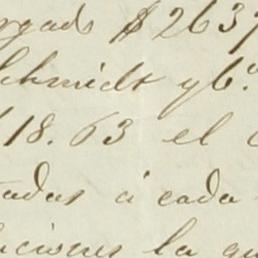 rgado $ 2637
Schmidt y C.ª
18.63 el
tadas á cada
ciones la qu